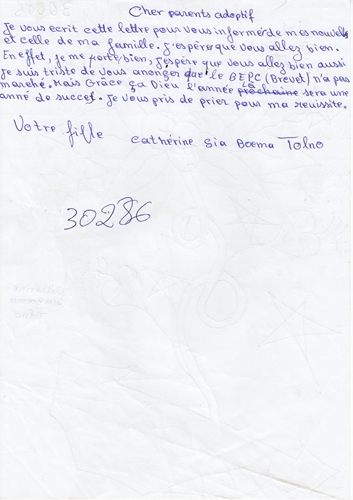 Cher parents adoptif
Je vous ecrit cette lettre pour vous informér de mes nouvelles
et celle de ma famille. J'espère que vous allez bien.
En effet, je me porte bien, j'espère que vous allez bien aussi
je suis triste de vous anonçer que le BEPC (Brevet) n'a pas
marché. Mais Grâce ça Dieu l'année prochaine sera une
anné de succet. Je vous pris de prier pour ma reuissite.
Votre fille
Cathérine Sia Boema Tolno
30286